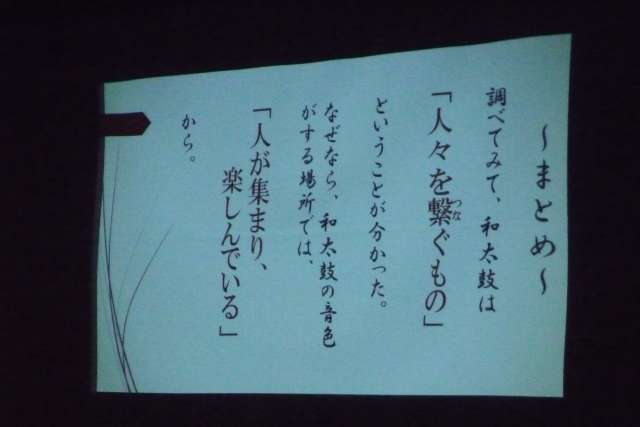 ～まとめ～
調べてみて、和太鼓は
「人々を繋ぐもの」
つな
ということが分かった。
なぜなら、和太鼓の音色
がする場所では、
「人が集まり、
楽しんでいる」
から。